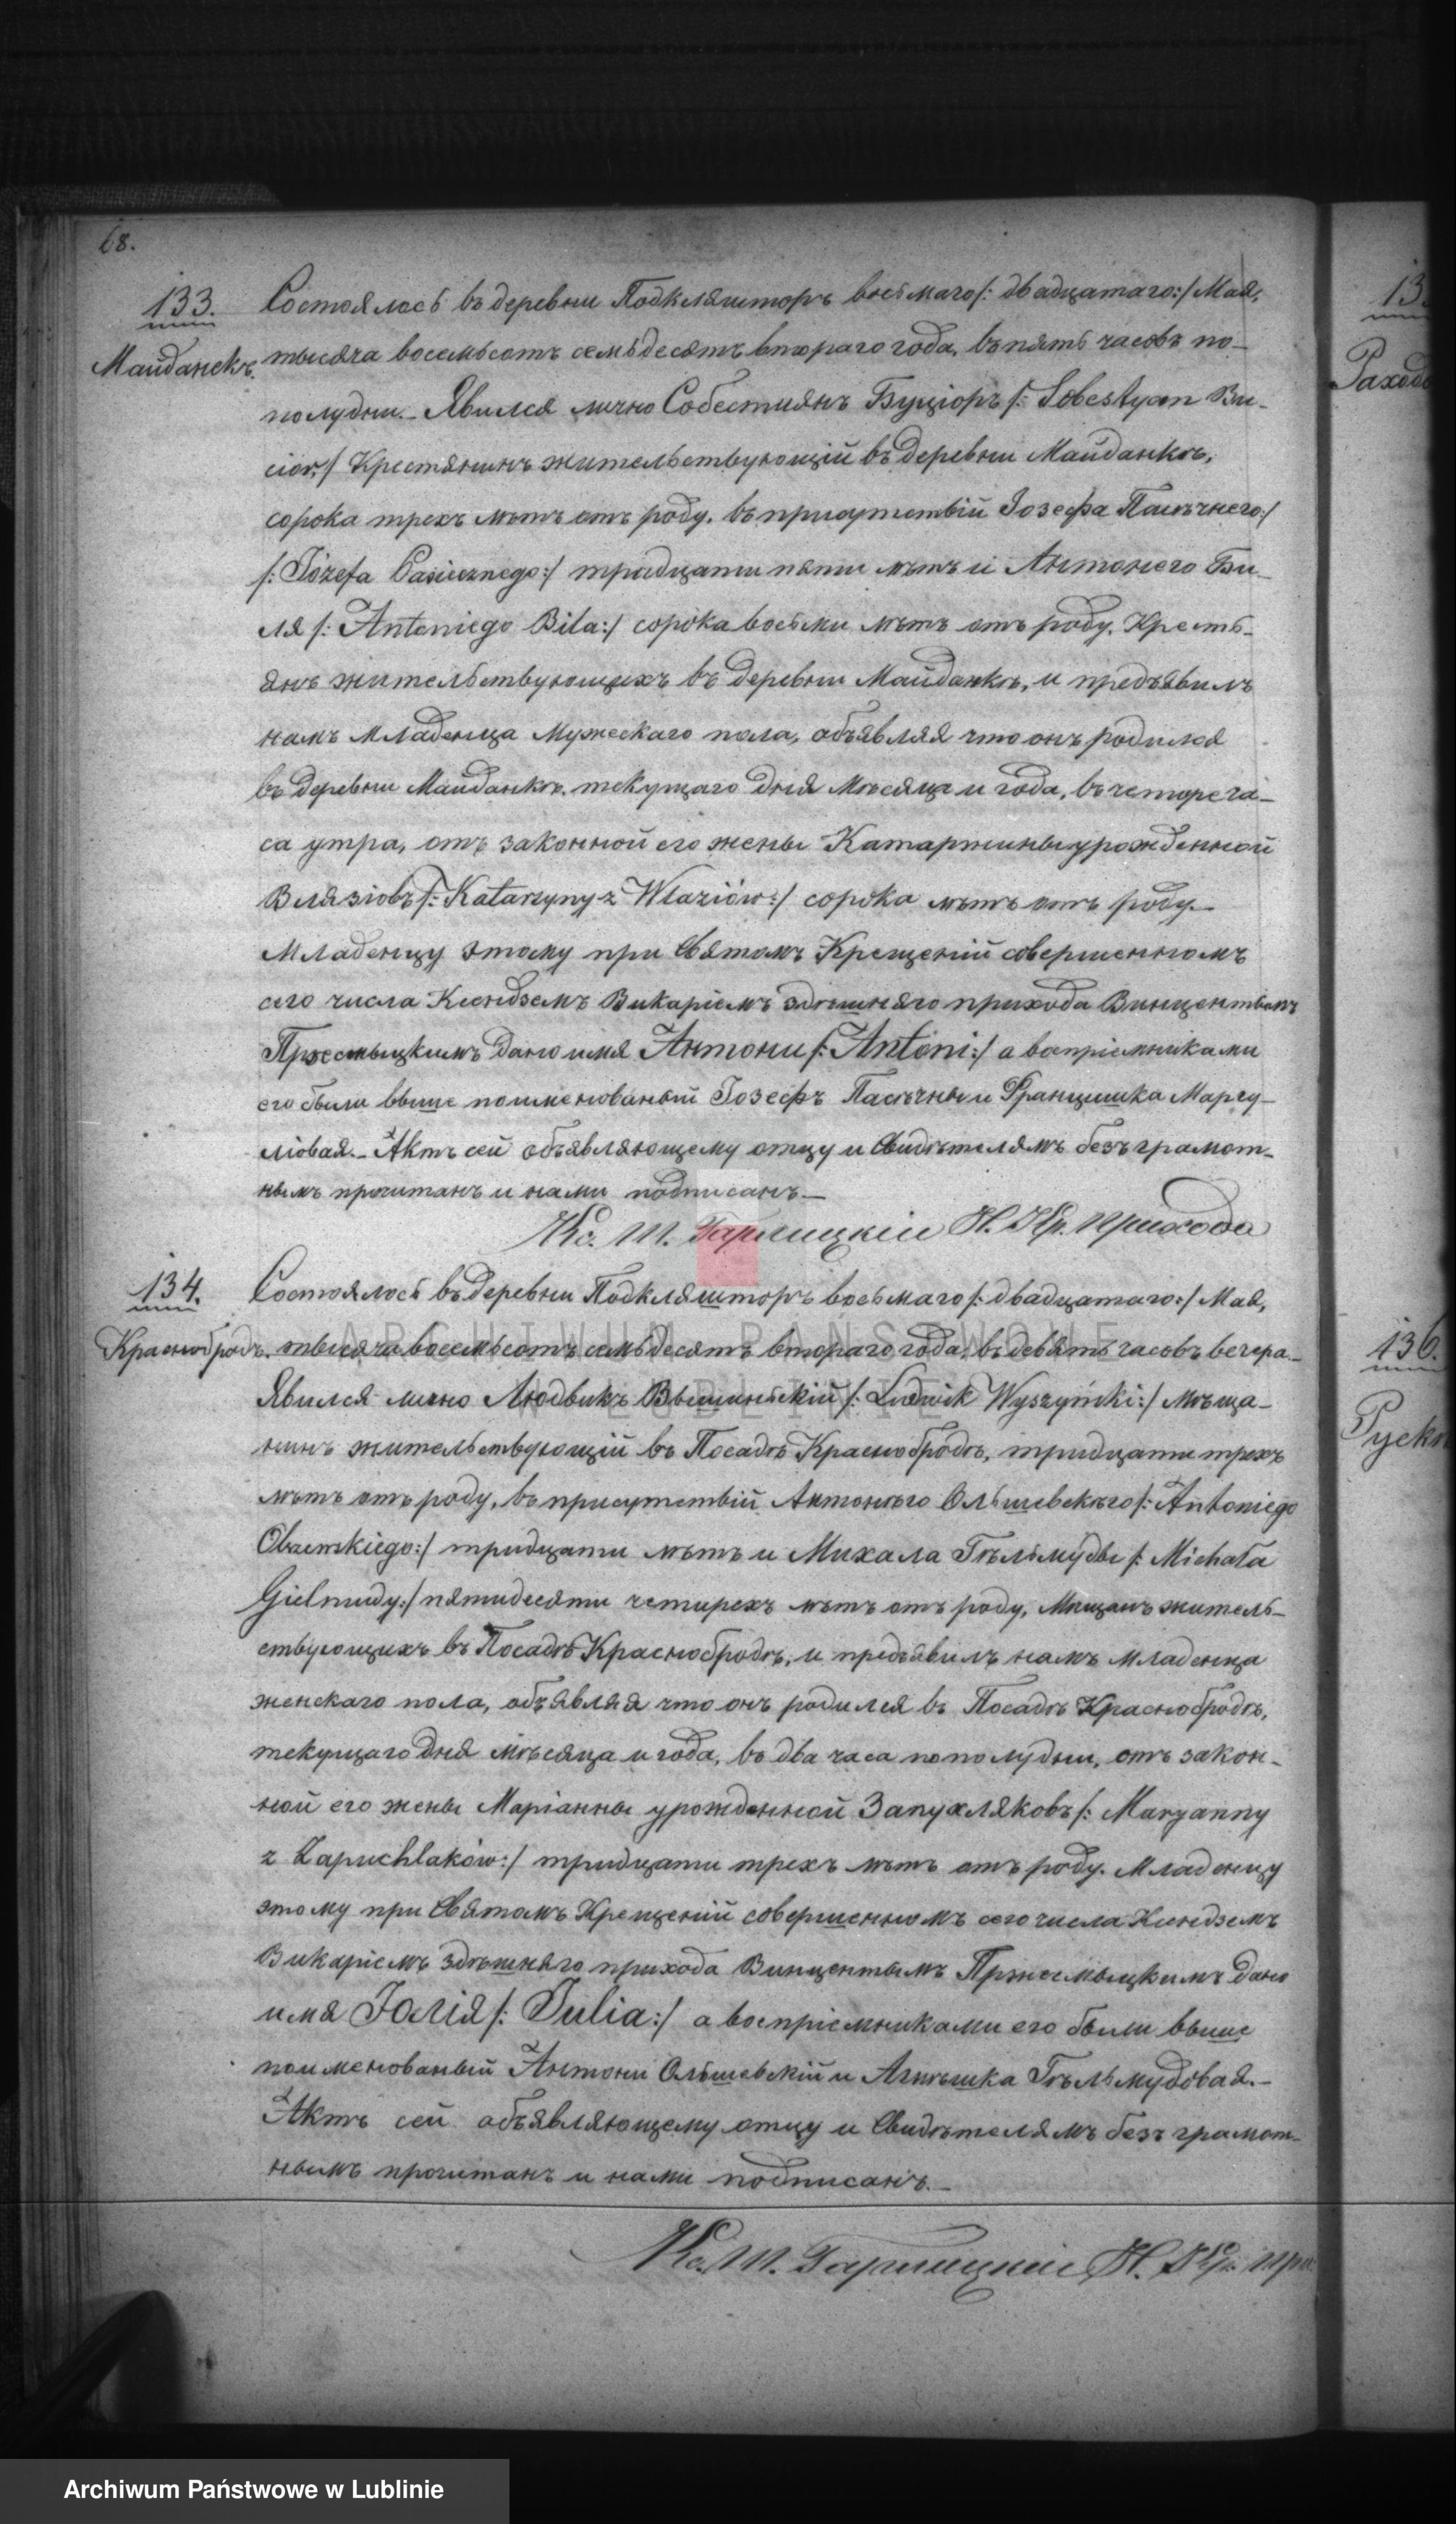 68.
133.
Майданекъ.
Состоялось въ деревни Подкляшторъ восьмаго /: двадцатаго :/ Мая,
тысяча восемьсотъ семьдесятъ втораго года, въ пять часовъ по-
полудни. Явился лично Собестиянъ Буціоръ /: Sobestyan Bu-
cior :/ Крестянинъ жительствующій въ деревни Майданкъ,
сорока трехъ лѣтъ отъ роду, въ присутствій Іозефа Пасѣчнего :/
/: Józefa Pasiecznego :/ тридцати пяти лѣтъ и Антонего Би-
ля /: Antoniego Bila :/ сорока восьми лѣтъ отъ роду, Кресть-
янъ жительствующихъ въ деревни Майданкѣ, и предъявилъ
намъ младенца мужескаго пола, объявляя что онъ родился
въ деревни Майданкѣ, текущаго дня мѣсяца и года, въ четыре ча-
са утра, отъ законной его жены Катаржины урожденной
Влязіовъ /: Katarzyny z Wlaziów :/ сорока лѣтъ отъ роду.
Младенцу этому при Святомъ Крещеній совершенномъ
сего числа Ксендземъ Викаріемъ здѣшняго прихода Винцентымъ
Пржесмыцкимъ дано имя Антони /: Antoni :/ а воспріемниками
его были выше поименованый Іозефъ Пасѣчны и Францишка Маргу-
ліовая. Актъ сей объявляющему отцу и Свидѣтелямъ безъ грамот-
нымъ прочитанъ и нами подписанъ.
Кс. Ш. Гарлицкіи Н. Кр. прихода
134.
Краснобродъ.
Состоялось въ деревни Подкляшторъ восьмаго /: двадцатаго :/ Мая,
тысяча восемьсотъ семьдесятъ втораго года, въ девять часовъ вечера.
Явился лично Людвикъ Вышиньскій /: Ludwik Wyszyński :/ Мѣща-
нинъ жительствующій въ Посадѣ Краснобродѣ, тридцати трехъ
лѣтъ отъ роду, въ присутствій Антонѣго Ольшевскѣго /: Antoniego
Olszewskiego :/ тридцати лѣтъ и Михала Гѣльмуды /: Michała
Gielmudy :/ пятидесяти четирехъ лѣтъ отъ роду, Мѣщанъ житель-
ствующихъ въ Посадѣ Краснобродѣ, и предъявилъ намъ младенца
женскаго пола, объявляя что онъ родился въ Посадѣ Краснобродѣ,
текущаго дня мѣсяца и года, въ два часа пополудни, отъ закон-
ной его жены Маріанны урожденной Запухляковъ /: Maryanny
z Zapuchlaków :/ тридцати трехъ лѣтъ отъ роду. Младенцу
этому при Святомъ Крещеній совершенномъ сего числа Ксендземъ
Викаріемъ здѣшняго прихода Винцентымъ Пржесмыцкимъ дано
имя Юлія /: Julia :/ а воспріемниками его были выше
поименованый Антони Ольшевскій и Агнѣшка Гѣльмудовая.
Актъ сей объявляющему отцу и Свидѣтелямъ безъ грамот-
нымъ прочитанъ и нами подписанъ.
Кс. Ш. Гарлицкіи Н. Кр. при
13
136.
ARCHIWUM PAŃSTWOWE
W LUBLINIE
Archiwum Państwowe w Lublinie